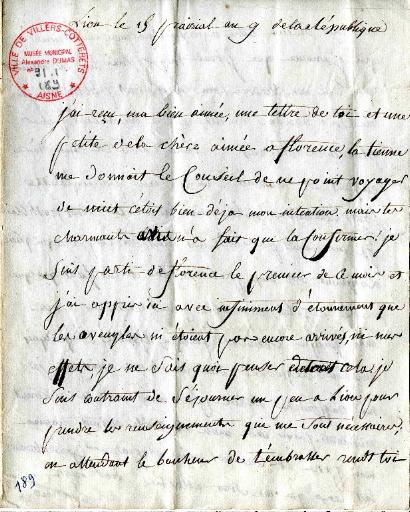 Lion le 15 prairial an 9 de la république
VILLE DE VILLERS-COTTERETS
MUSÉE MUNICIPAL
Alexandre DUMAS
AISNE
j'ai reçu, ma bien aimée, une lettre de toi et une
petite de la chère aimée a florence, la tienne
me donnait le Conseil de ne point voyager
de nuit cétoit bien déja mon intention mais ta
charmante n'a fait que la Confirmer. je
suis parti de florence le premier de ce mois et
j'ai appris ici avec infiniment d'étonnement que
les aveugles ni étoient pas encore arrivés, ni mes
effets je ne sais quoi penser de tout cela. je
suis contraint de Séjourner un peu a Lion pour
prendre les renseignements qui me sont nécessaires,
en attendant le bonheur de t'embrasser rends toi
189